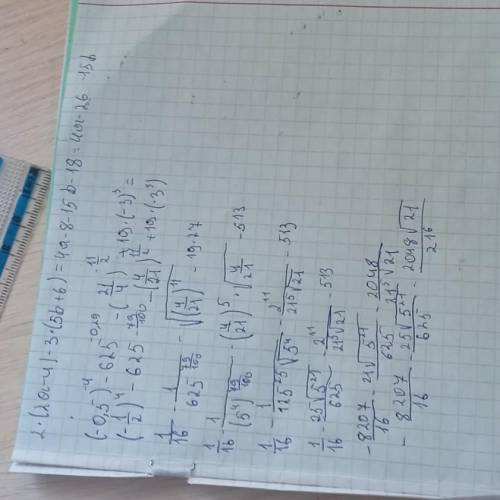 2·(2a-4)-3·(5b+6)=4a-8-15b-18=4a-26-15b
(-0,5)^-4 - 625^-0,29 - (21/4)^-11/2 + 19·(-3)^3 =
(1/2)^4 - 625^-29/100 - (4/21)^11/2 + 19·(-3^3)
1/16 - 1/625^29/100 - √(4/21)^11 - 19·27
1/16 - 1/(5^4)^29/100 - (4/21)^5 · √4/21 - 513
1/16 - 1/125^25√5^4 - 2^11/21^5√21 - 513
1/16 - 25√5^21/625 - 2^11/21^5√21 - 513
-8207/16 - 21√5^4/625 - 2048/21^5√21
-8207/16 - 25√5^21/625 - 2048√21/21^6